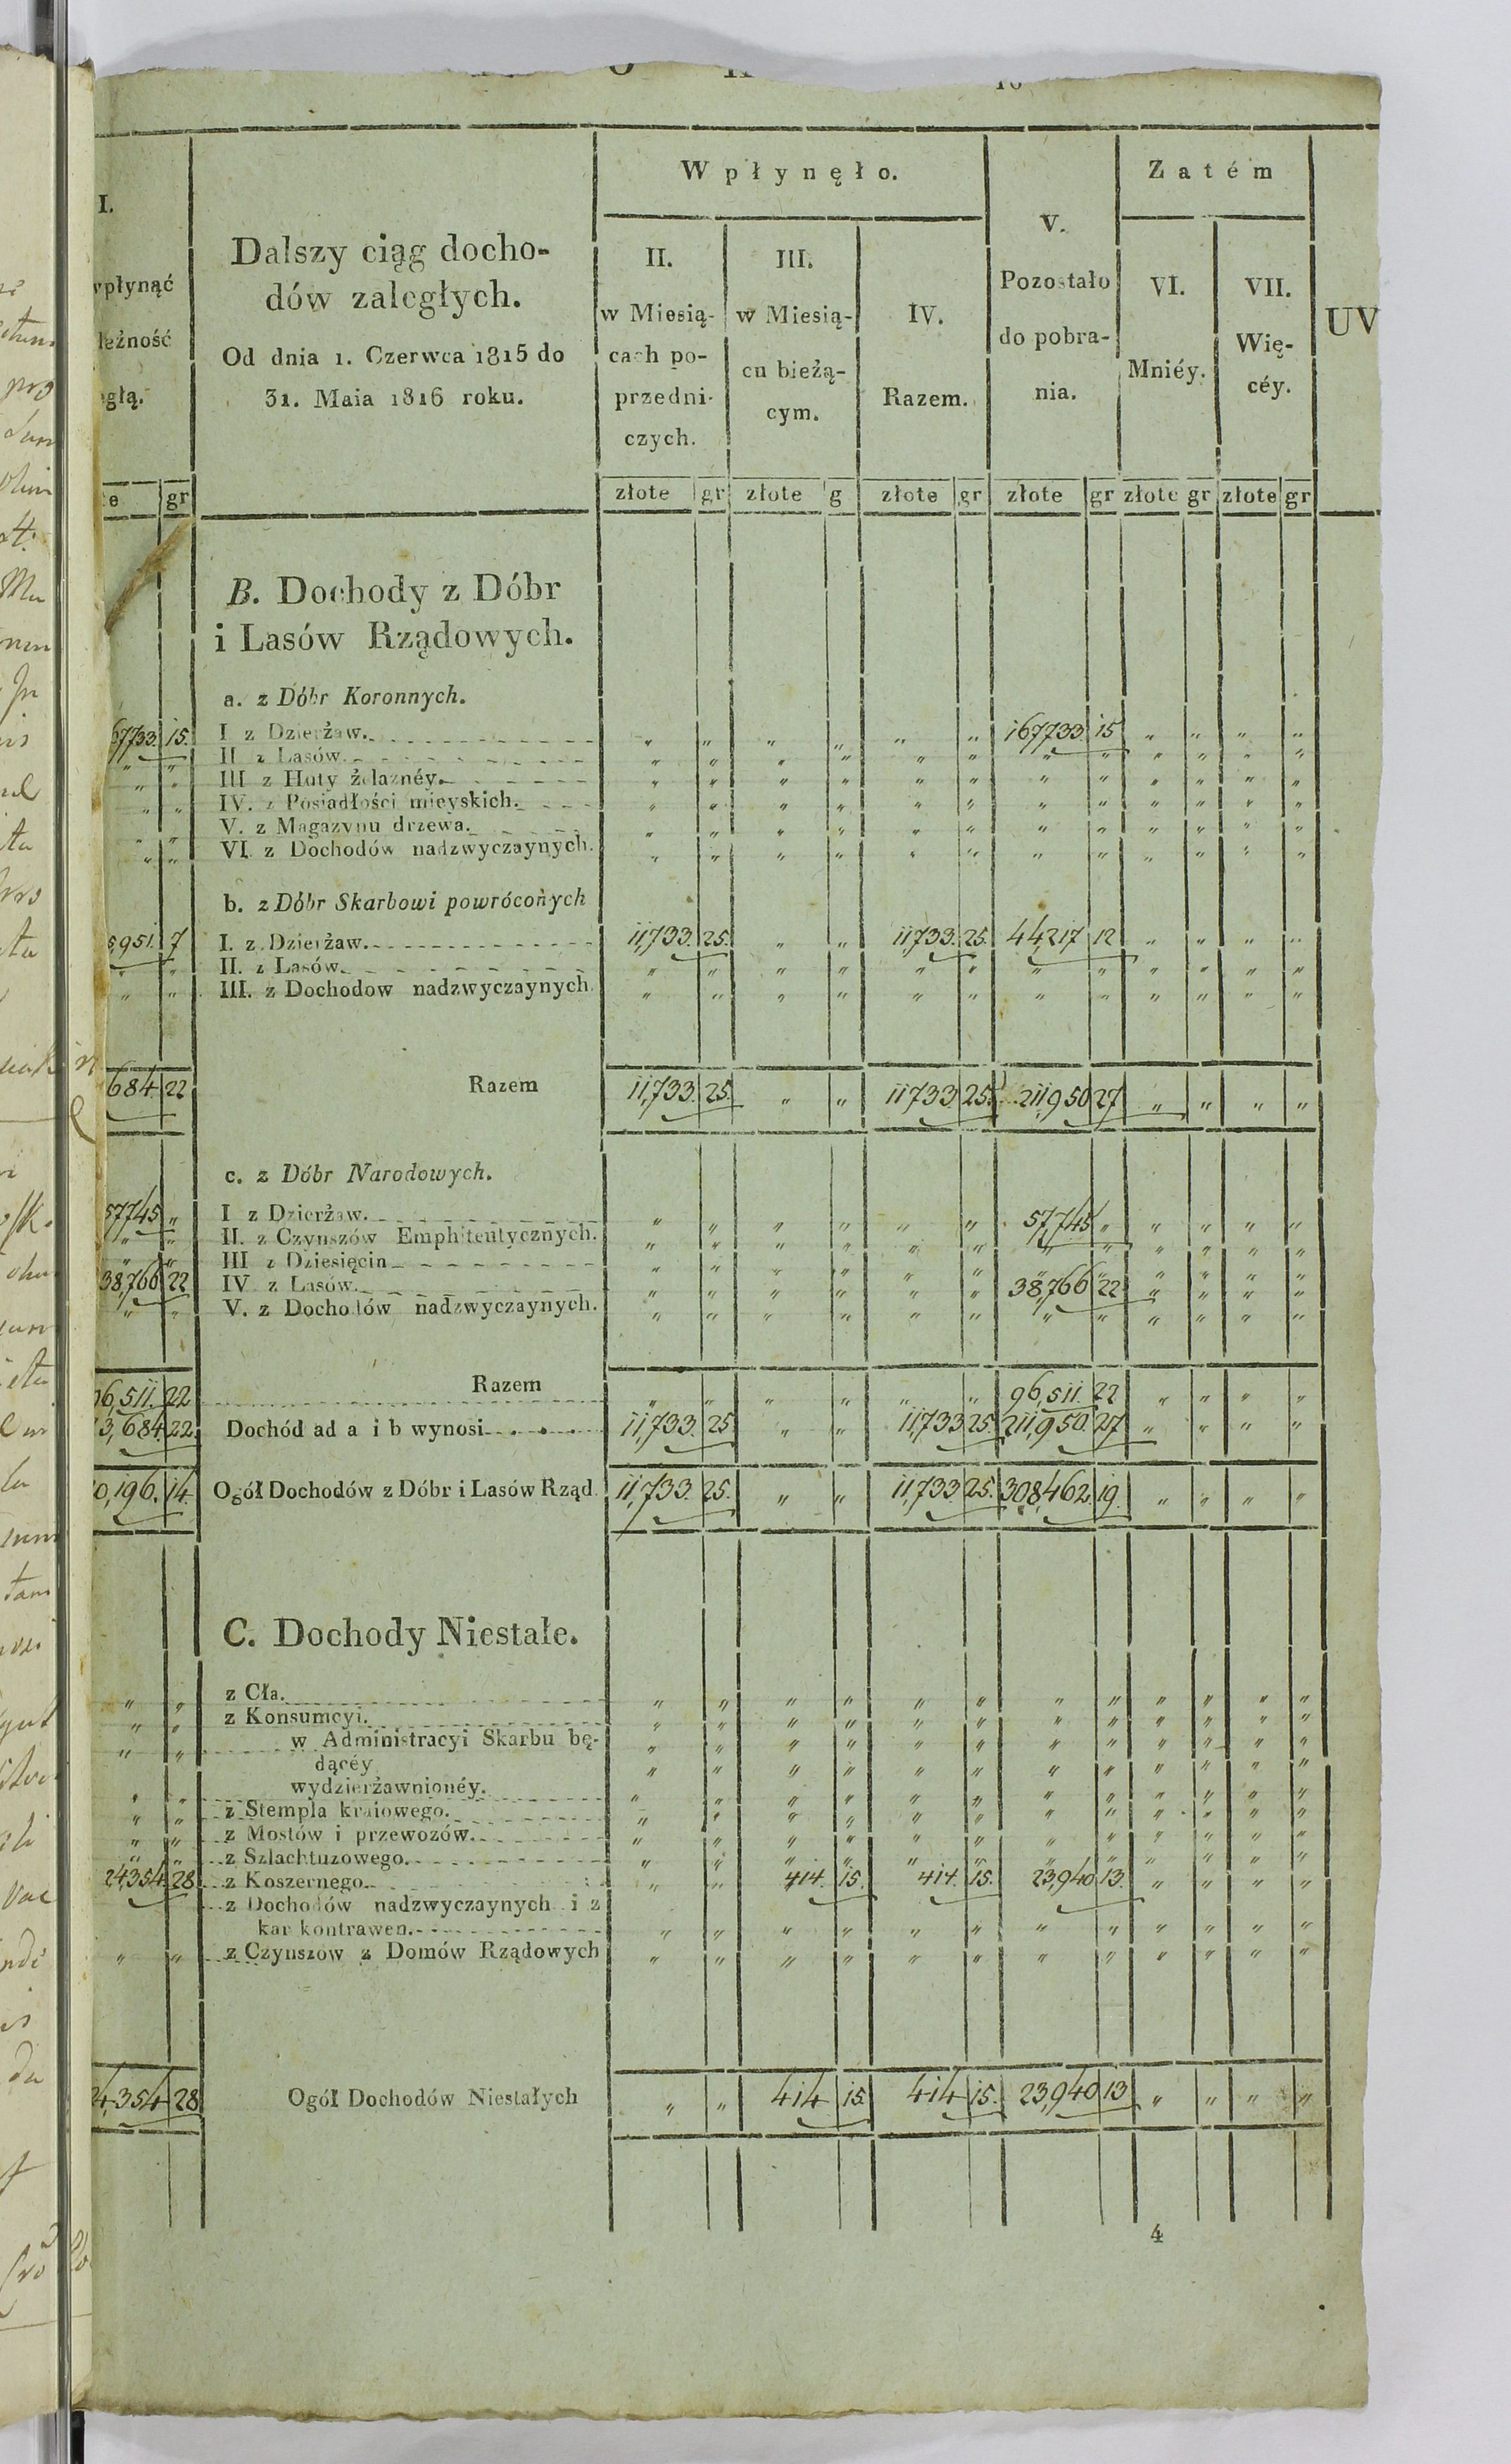 I.
wpłynąć
leżność
egłą.
te gr
Dalszy ciąg docho-
dów zaległych.
Od dnia 1. Czerwca 1815 do
31. Maia 1816 roku.
Wpłynęło.
II.
w Miesią-
cach po-
przedni-
czych.
III.
w Miesią-
cu bieżą-
cym.
IV.
Razem.
V.
Pozostało
do pobra-
nia.
Zatém
VI.
Mniéy.
VII.
Wię-
céy.
UV
złote gr złote g złote gr złote gr złote gr złote gr
B. Dochody z Dóbr
i Lasów Rządowych.
a. z Dóbr Koronnych.
67733. 15. I z Dzierżaw. " " " " " " 167733 15 " " " "
" " II z Lasów. " " " " " " " " " " " "
" " III z Huty żelaznéy. " " " " " " " " " " " "
" " IV. z Posiadłości mieyskich. " " " " " " " " " " " "
" " V. z Magazynu drzewa. " " " " " " " " " " " "
" " VI. z Dochodów nadzwyczaynych. " " " " " " " " " " " "
b. z Dóbr Skarbowi powróconych
5,951. 7 I. z Dzierżaw. 11,733. 25. " " 11,733. 25. 44,217 12 " " " "
" " II. z Lasów. " " " " " " " " " " " "
" " III. z Dochodow nadzwyczaynych. " " " " " " " " " " " "
684. 22 Razem 11,733. 25. " " 11733 25. 211,950 27 " " " "
c. z Dóbr Narodowych.
57745 " I z Dzierżaw. " " " " " " 57,745 " " " " "
" " II. z Czynszów Emphiteutycznych. " " " " " " " " " " " "
" " III z Dziesięcin " " " " " " " " " " " "
38,766 22 IV z Lasów. " " " " " " 38,766 22 " " " "
" " V. z Dochodów nadzwyczaynych. " " " " " " " " " " " "
96,511. 22 Razem " " " " " " 96,511. 22 " " " "
3,684 22. Dochód ad a i b wynosi 11,733. 25. " " 11,733 25. 211,950. 27 " " " "
0,196. 14. Ogół Dochodów z Dóbr i Lasów Rząd. 11,733. 25. " " 11,733 25. 308,462. 19. " " " "
C. Dochody Niestałe.
" " z Cła. " " " " " " " " " " " "
" " z Konsumcyi. " " " " " " " " " " " "
" " w Administracyi Skarbu bę- " " " " " " " " " " " "
dącéy " " " " " " " " " " " "
" " wydzierżawnionéy. " " " " " " " " " " " "
" " z Stempla kraiowego. " " " " " " " " " " " "
" " z Mostów i przewozów. " " " " " " " " " " " "
" " z Szlachtuzowego. " " " " " " " " " " " "
24,354 28 z Koszernego. " " 414. 15. 414. 15. 23,940 13. " " " "
z Dochodów nadzwyczaynych i z
kar kontrawen. " " " " " " " " " " " "
" " z Czynszow z Domów Rządowych " " " " " " " " " " " "
24,354 28 Ogół Dochodów Niestałych " " 414 15. 414 15. 23,940 13 " " " "
4